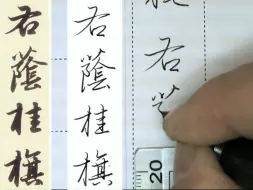 右蔭桂旗
右蔭桂旗
右
20